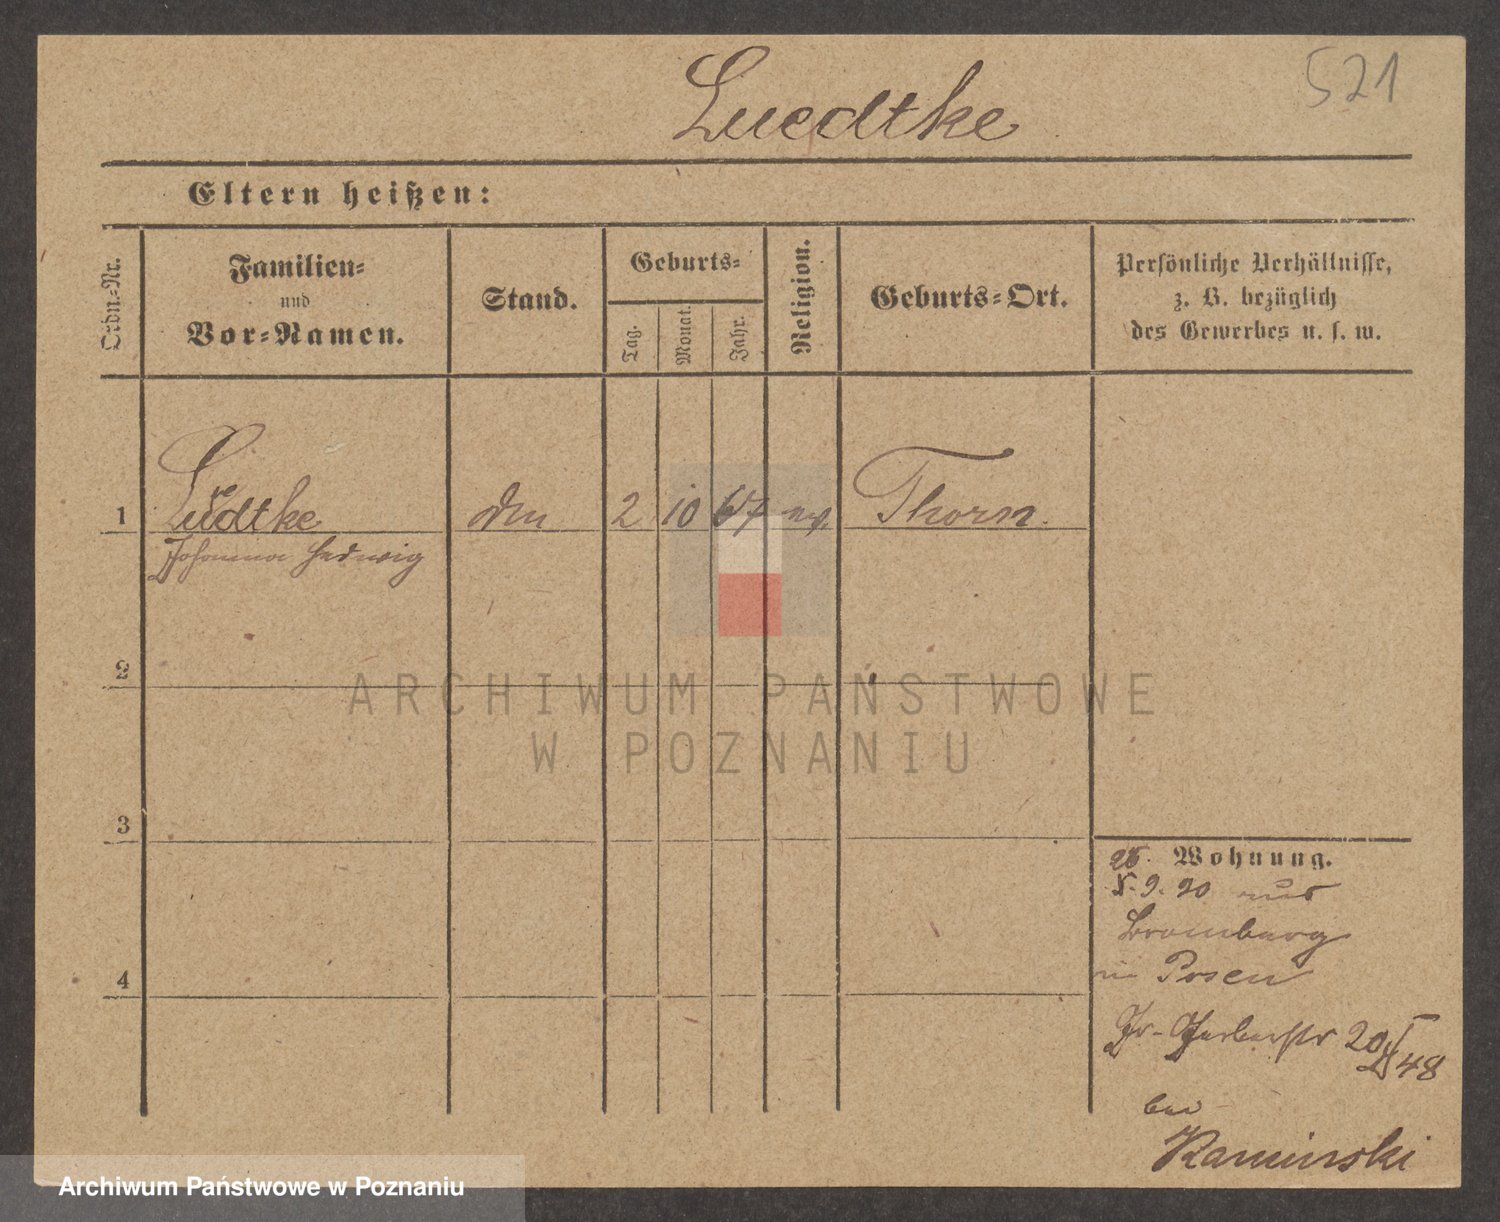 Luedtke
521
Eltern heißen:
Ordn.-Nr.
Familien-
und
Vor-Namen.
Stand.
Geburts-
Tag.
Monat.
Jahr.
Religion.
Geburts-Ort.
Persönliche Verhältnisse,
z. B. bezüglich
des Gewerbes u. s. w.
1 Lüdtke 2 10 67 Thorn.
Johanna Hedwig
2
ARCHIWUM PAŃSTWOWE
W POZNANIU
3
Wohnung.
9. 90 aus
Bromberg
in Posen
Gr. Gerberstr 20
48
bei
Kaminski
4
Archiwum Państwowe w Poznaniu